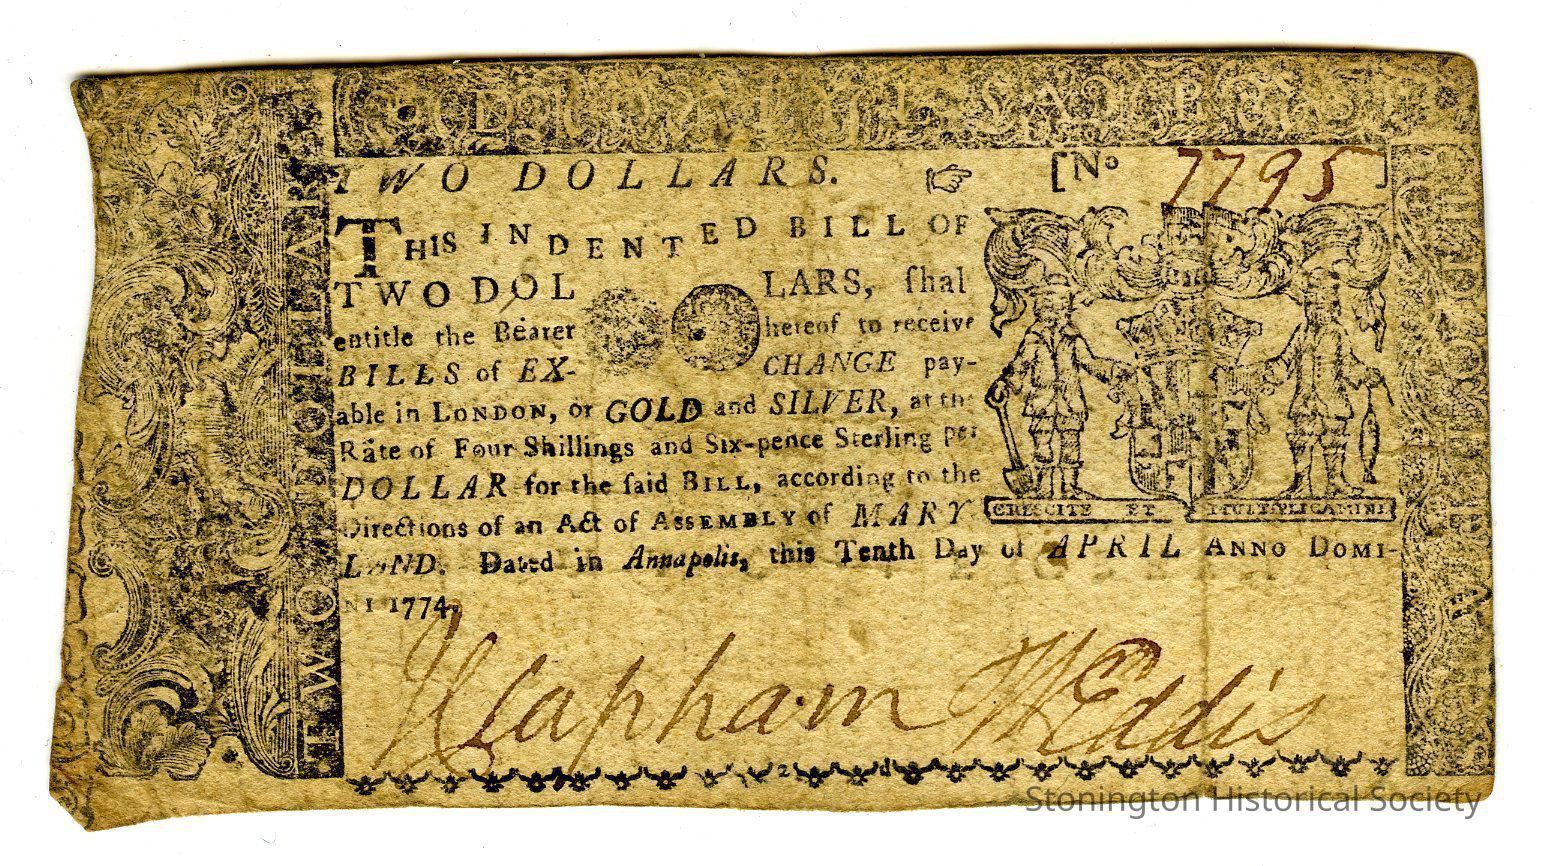 TWO DOLLARS. ☞ [No 7795]
THIS INDENTED BILL OF
TWO DOL LARS, ſhal
entitle the Bearer hereof to receive
BILLS of EX- CHANGE pay-
able in LONDON, or GOLD and SILVER, at the
Rate of Four Shillings and Six-pence Sterling per
DOLLAR for the ſaid BILL, according to the
Directions of an Act of ASSEMBLY of MARY
LAND. Dated in Annapolis, this Tenth Day of APRIL ANNO DOMI-
NI 1774.
CRESCITE ET MULTIPLICAMINI
TWO DOLLARS
Jl Clapham W Eddis
Stonington Historical Society